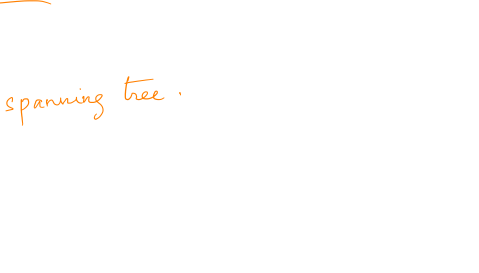 spanning tree.